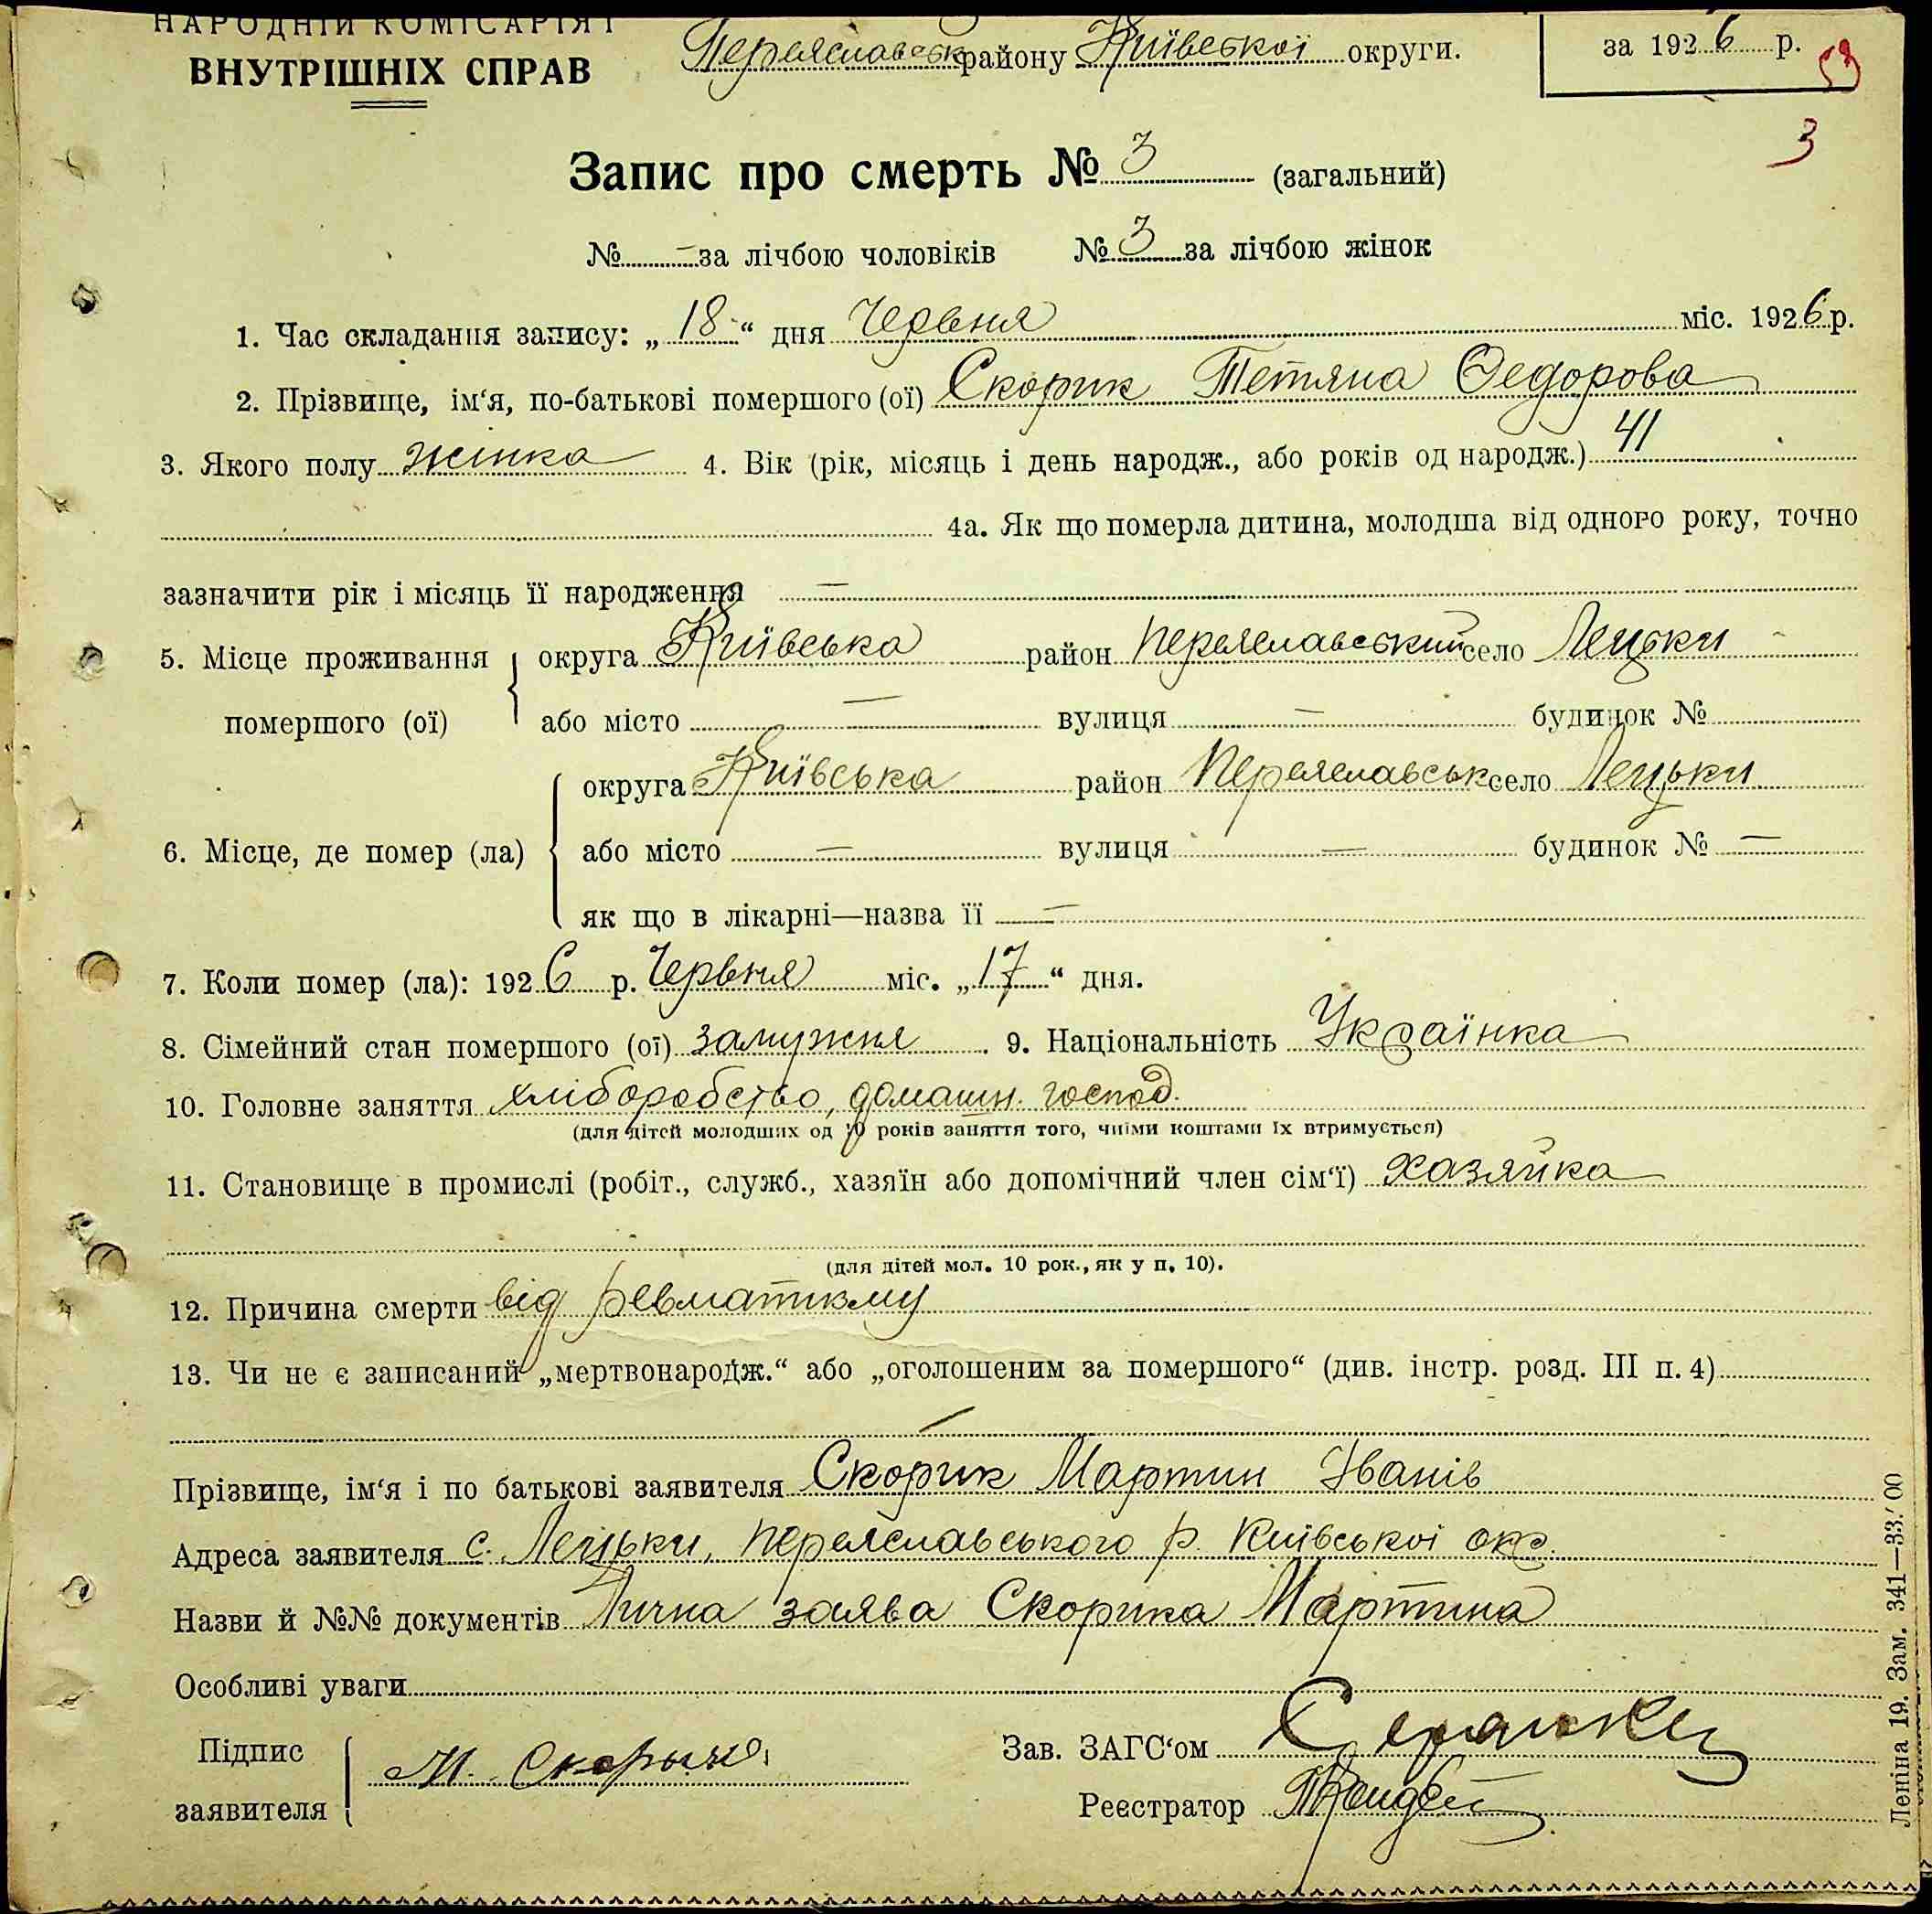 НАРОДНІЙ КОМІСАРІЯТ
ВНУТРІШНІХ СПРАВ
Переяславськ району Київської округи.
за 1926 р.
3
Запис про смерть № 3 (загальний)
№ — за лічбою чоловіків № 3 за лічбою жінок
1. Час складання запису: „18“ дня Червня міс. 1926 р.
2. Прізвище, ім‘я, по-батькові помершого (ої) Скорик Тетяна Федорова
3. Якого полу жінка 4. Вік (рік, місяць і день народж., або років од народж.) 41
4а. Як що померла дитина, молодша від одного року, точно
зазначити рік і місяць її народження —
5. Місце проживання помершого (ої) округа Київська район Переяславський село Лецьки
або місто — вулиця — будинок №
6. Місце, де помер (ла) округа Київська район Переяславськ село Лецьки
або місто — вулиця — будинок № —
як що в лікарні—назва її —
7. Коли помер (ла): 1926 р. Червня міс. „17“ дня.
8. Сімейний стан помершого (ої) замужня. 9. Національність Українка
10. Головне заняття хліборобство, домашн. господ.
(для дітей молодших од 10 років заняття того, чиїми коштами їх втримується)
11. Становище в промислі (робіт., служб., хазяїн або допомічний член сім‘ї) хазяйка
(для дітей мол. 10 рок., як у п. 10).
12. Причина смерти від ревматизму
13. Чи не є записаний „мертвонародж.“ або „оголошеним за помершого“ (див. інстр. розд. III п. 4)
—
Прізвище, ім‘я і по батькові заявителя Скорик Мартин Іванів
Адреса заявителя с. Лецьки, Переяславського р. Київської окр.
Назви й №№ документів Лична заява Скорика Мартина
Особливі уваги
Підпис заявителя М. Скорык
Зав. ЗАГС‘ом
Реєстратор
Леніна 19. Зам. 341—33.